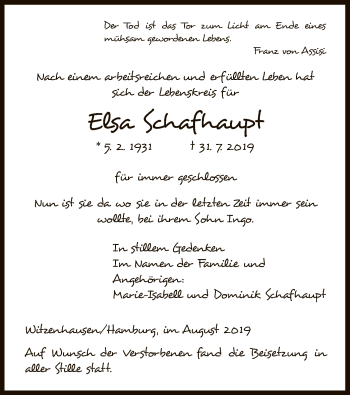 Der Tod ist das Tor zum Licht am Ende eines
mühsam gewordenen Lebens.
Franz von Assisi
Nach einem arbeitsreichen und erfüllten Leben hat
sich der Lebenskreis für
Elsa Schafhaupt
* 5. 2. 1931 † 31. 7. 2019
für immer geschlossen
Nun ist sie da wo sie in der letzten Zeit immer sein
wollte, bei ihrem Sohn Ingo.
In stillem Gedenken
Im Namen der Familie und
Angehörigen:
Marie-Isabell und Dominik Schafhaupt
Witzenhausen/Hamburg, im August 2019
Auf Wunsch der Verstorbenen fand die Beisetzung in
aller Stille statt.